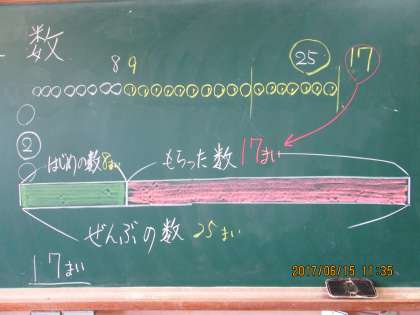 数
8 9 25 17
2
はじめの数8まい もらった数17まい
ぜんぶの数 25まい
17まい
2017/06/15 11:35